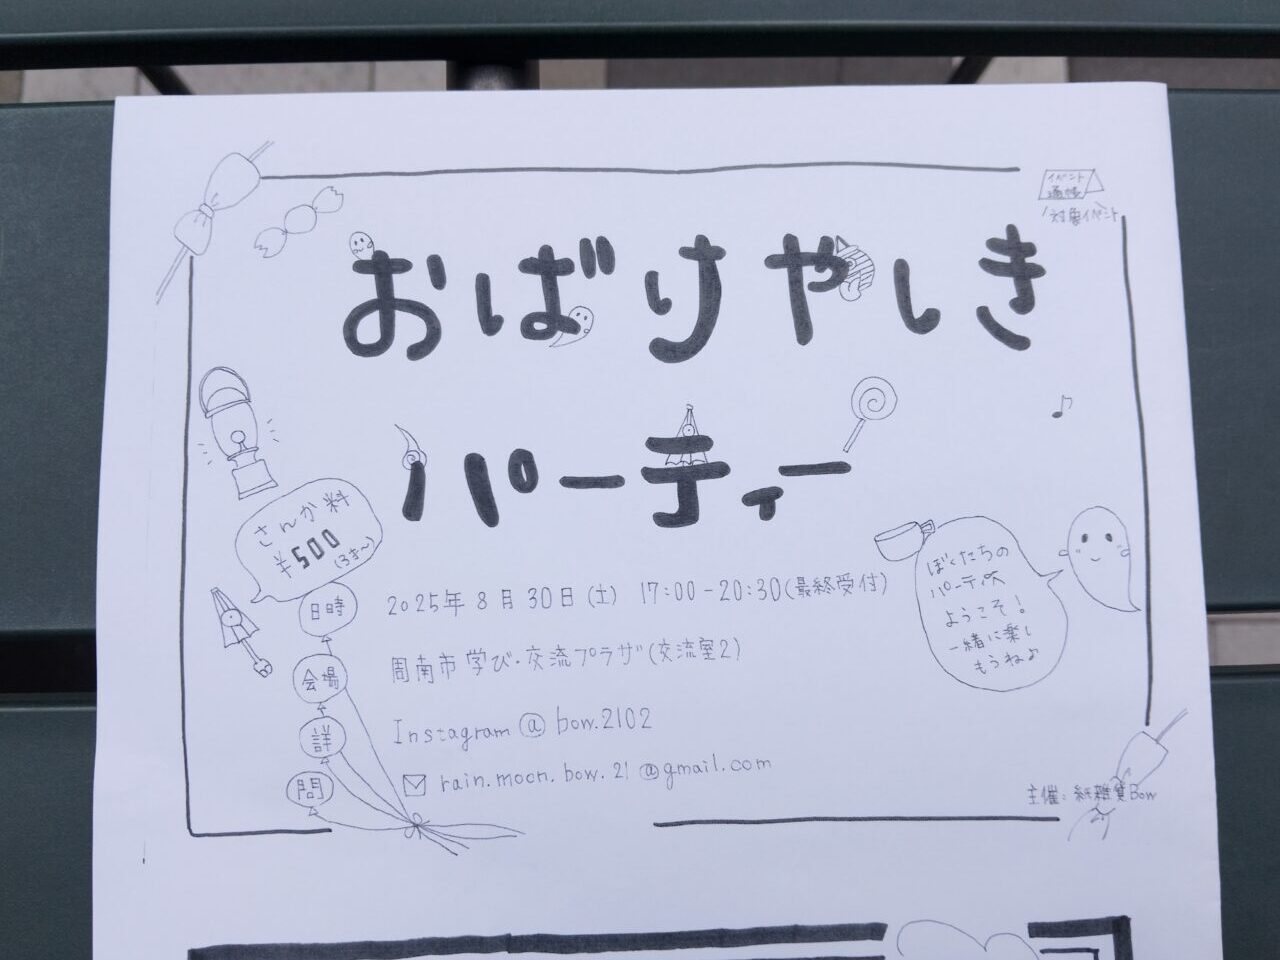 イベント
通帳
対象イベント
おばけやしき
パーティー
さんか料
¥500
(3才〜)
日時 2025年8月30日(土) 17:00-20:30(最終受付)
会場 周南市 学び・交流プラザ(交流室2)
詳 Instagram @ bow.2102
問 rain.moon.bow.21@gmail.com
ぼくたちの
パーティへ
ようこそ!
一緒に楽し
もうね♪
主催:紙雑貨Bow